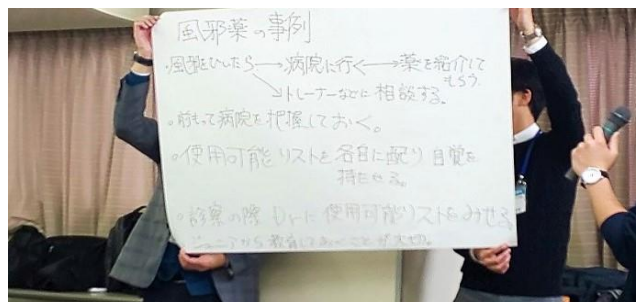 風邪薬の事例
・風邪をひいたら→病院に行く→薬を紹介して
もらう
↘トレーナーなどに相談する。
・前もって病院を把握しておく。
・使用可能リストを各自に配り自覚を
持たせる。
・診察の際Drに使用可能リストをみせる
ジュニアから教育しておくことが大切。